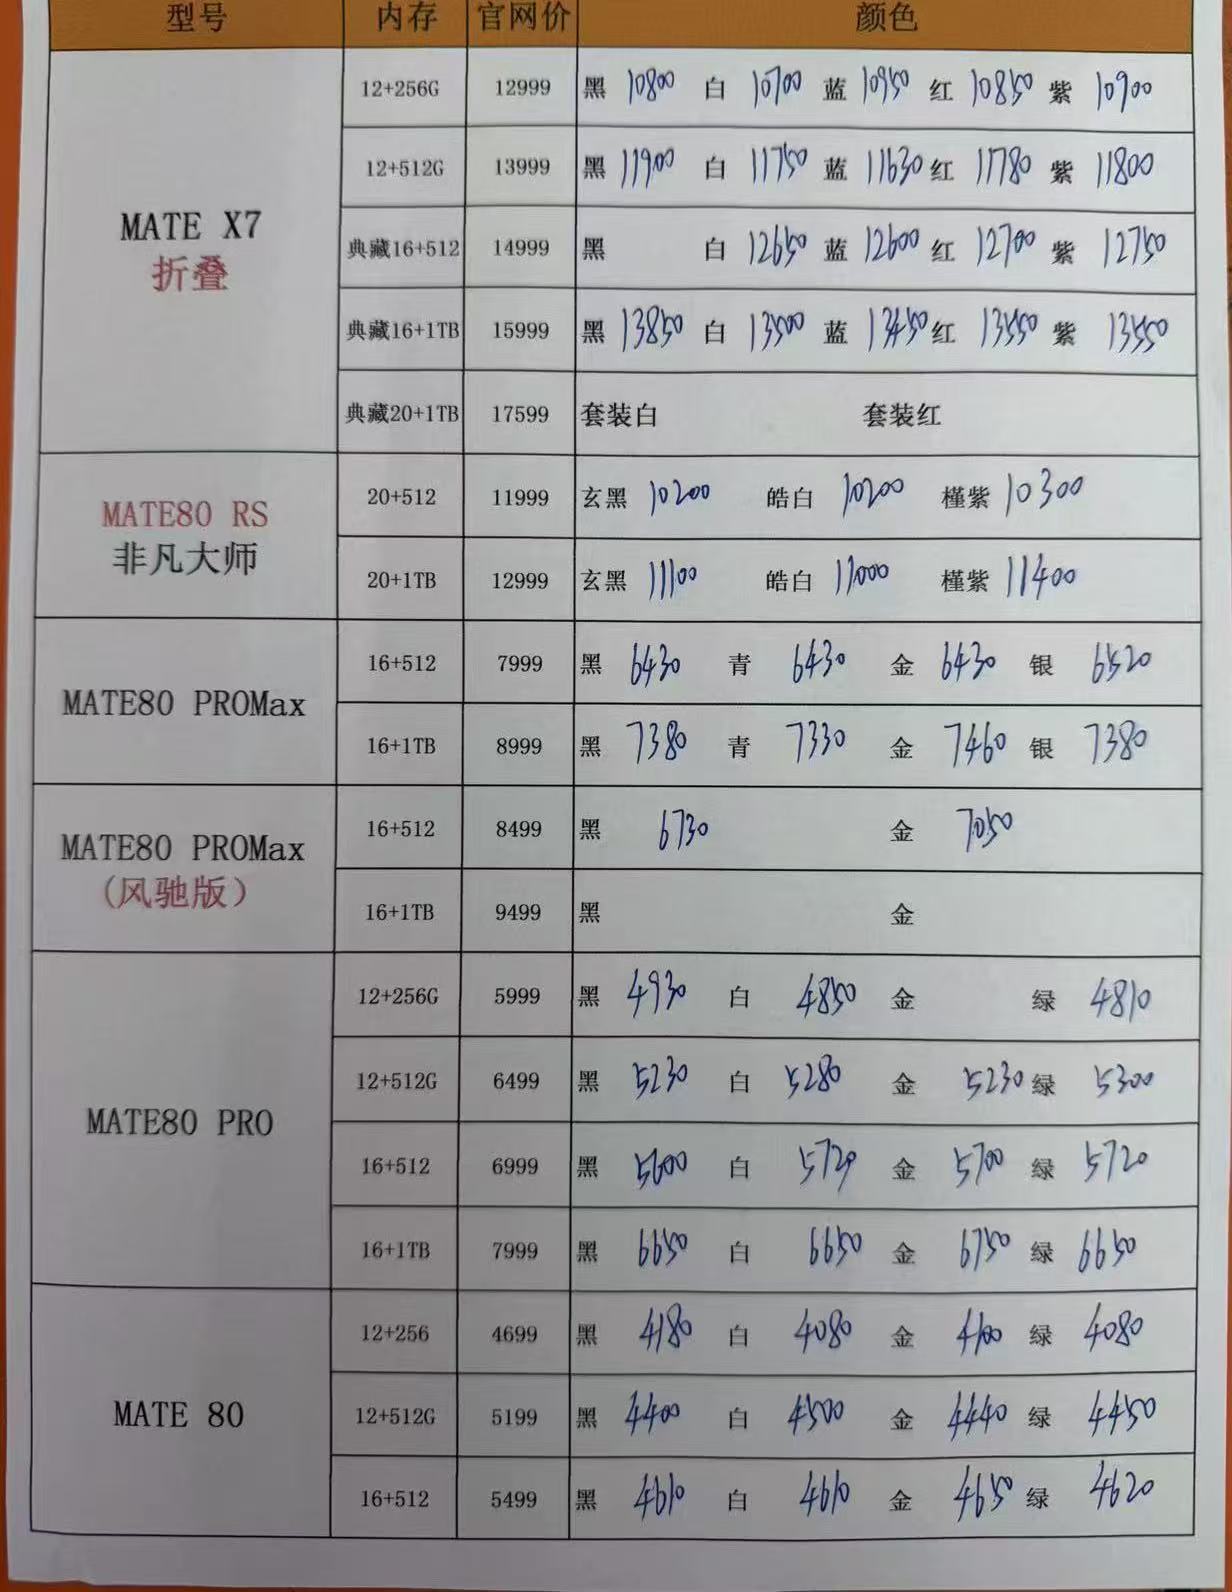 型号 内存 官网价 颜色
12+256G 12999 黑 10800 白 10700 蓝 10950 红 10850 紫 10900
12+512G 13999 黑 11900 白 11750 蓝 11630 红 11780 紫 11800
MATE X7
折叠
典藏16+512 14999 黑 白 12650 蓝 12600 红 12700 紫 12750
典藏16+1TB 15999 黑 13850 白 13500 蓝 13450 红 13550 紫 13550
典藏20+1TB 17599 套装白 套装红
MATE80 RS
非凡大师
20+512 11999 玄黑 10200 皓白 10200 槿紫 10300
20+1TB 12999 玄黑 11100 皓白 11000 槿紫 11400
MATE80 PROMax
16+512 7999 黑 6430 青 6430 金 6430 银 6520
16+1TB 8999 黑 7380 青 7330 金 7460 银 7380
MATE80 PROMax
(风驰版)
16+512 8499 黑 6730 金 7050
16+1TB 9499 黑 金
MATE80 PRO
12+256G 5999 黑 4930 白 4850 金 绿 4810
12+512G 6499 黑 5230 白 5280 金 5230 绿 5300
16+512 6999 黑 5600 白 5720 金 5700 绿 5720
16+1TB 7999 黑 6650 白 6650 金 6750 绿 6650
MATE 80
12+256 4699 黑 4180 白 4080 金 4100 绿 4080
12+512G 5199 黑 4400 白 4500 金 4440 绿 4450
16+512 5499 黑 4610 白 4610 金 4650 绿 4620